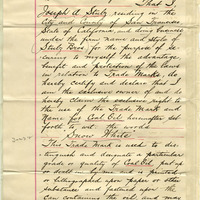 That I,
Joseph A. Stulz residing in the
City and County of San Francisco
State of California, and doing business
under the firm name and style of
Stulz Bros. for the purpose of se-
curing to myself the advantage
and protection of the
law in relation to Trade Marks, do
hereby certify and declare that I
am the exclusive owner of and do
hereby claim the exclusive right to
the use of the Trade Mark and
Name for Coal Oil hereinafter set
forth to wit the words
Snow White
This Trade Mark is used to dis-
tinguish and designate a particular
grade or quality of Coal Oil packed
or dealt in by me and is printed
or lithographed upon paper or other
substance and fastened upon the
can containing the oil and may